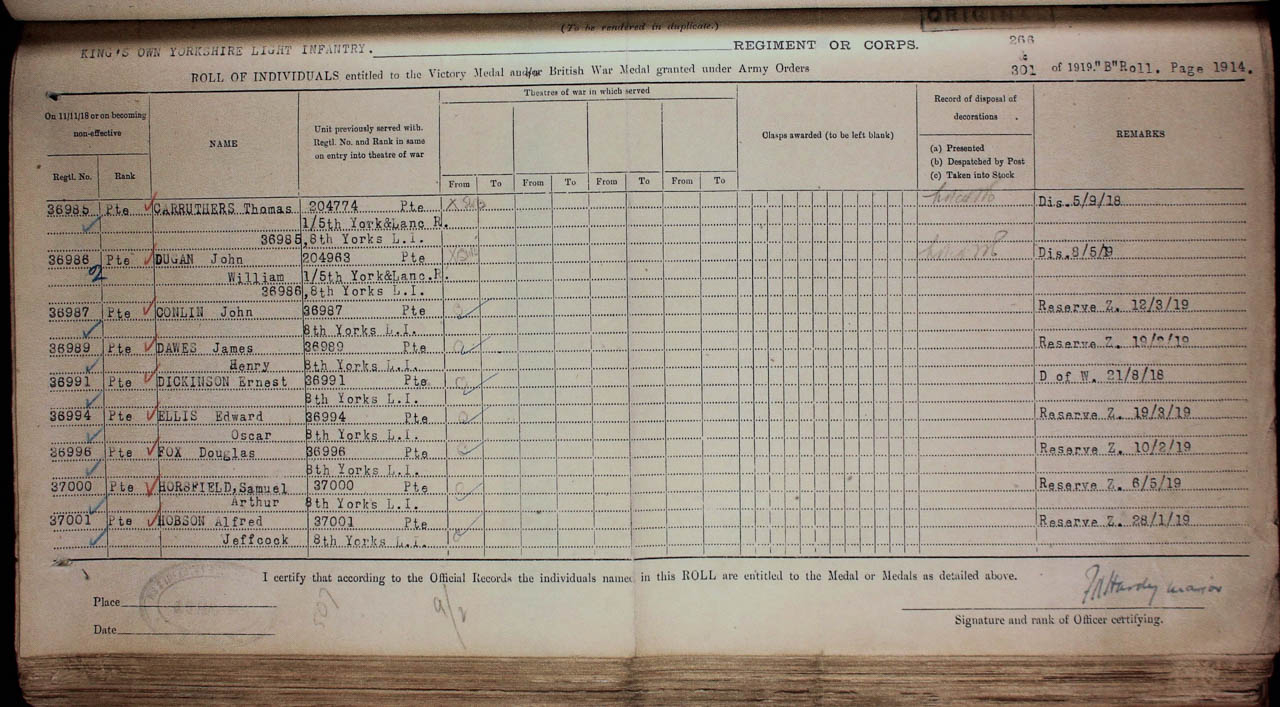 (To be rendered in duplicate.)
ORIGIN
KING'S OWN YORKSHIRE LIGHT INFANTRY. REGIMENT OR CORPS.
266
&
ROLL OF INDIVIDUALS entitled to the Victory Medal and/or British War Medal granted under Army Orders 301 of 1919."B"Roll. Page 1914.
On 11/11/18 or on becoming non-effective
Regtl. No. Rank
NAME
Unit previously served with. Regtl. No. and Rank in same on entry into theatre of war
Theatres of war in which served
From To From To From To From To
Clasps awarded (to be left blank)
Record of disposal of decorations
(a) Presented
(b) Despatched by Post
(c) Taken into Stock
REMARKS
36985 Pte CARRUTHERS Thomas 204774 Pte Dis.5/9/18
1/5th York&Lanc R.
36985,8th Yorks L.I.
36986 Pte DUGAN John 204963 Pte Dis.8/5/19
2 William 1/5th York&Lanc.R.
36986,8th Yorks L.I.
36987 Pte CONLIN John 36987 Pte Reserve Z. 12/3/19
8th Yorks L.I.
36989 Pte DAWES James 36989 Pte Reserve Z.
Henry 8th Yorks L.I.
36991 Pte DICKINSON Ernest 36991 Pte D of W. 21/8/18
8th Yorks L.I.
36994 Pte ELLIS Edward 36994 Pte Reserve Z. 19/3/19
Oscar 8th Yorks L.I.
36996 Pte FOX Douglas 36996 Pte Reserve Z. 10/2/19
8th Yorks L.I.
37000 Pte HORSFIELD,Samuel 37000 Pte Reserve Z. 6/5/19
Arthur 8th Yorks L.I.
37001 Pte HOBSON Alfred 37001 Pte Reserve Z. 28/1/19
Jeffcock 8th Yorks L.I.
I certify that according to the Official Records the individuals named in this ROLL are entitled to the Medal or Medals as detailed above.
Place
Date
507
9/2
Hardy Major
Signature and rank of Officer certifying.